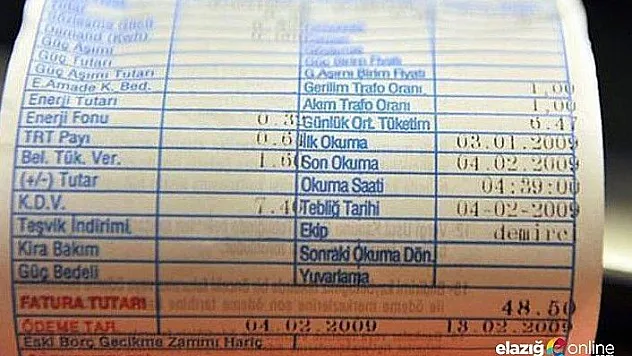 Tutar
Sözleşme (İndi)
Demand (Kwh)
Güç Aşımı
Güç Tutarı
Güç Birim Fiyatı
Güç Aşımı Tutarı
G.Aşımı Birim Fiyatı
E.Amade K. Bed.
Gerilim Trafo Oranı 1,00
Enerji Tutarı
Akım Trafo Oranı 1,00
Enerji Fonu 0.3
Günlük Ort. Tüketim 6.47
TRT Payı 0.6
İlk Okuma 03.01.2009
Bel. Tük. Ver. 1.6
Son Okuma 04.02.2009
(+/-) Tutar
Okuma Saati 04:39:00
K.D.V. 7.4
Tebliğ Tarihi 04-02-2009
Teşvik İndirimi
Ekip demirel
Kira Bakım
Sonraki Okuma Dön.
Güç Bedeli
Yuvarlama
FATURA TUTARI 48.50
ÖDEME TAR. 04.02.2009 18.02.2009
Eski Borç Gecikme Zammı Hariç
elazığ online